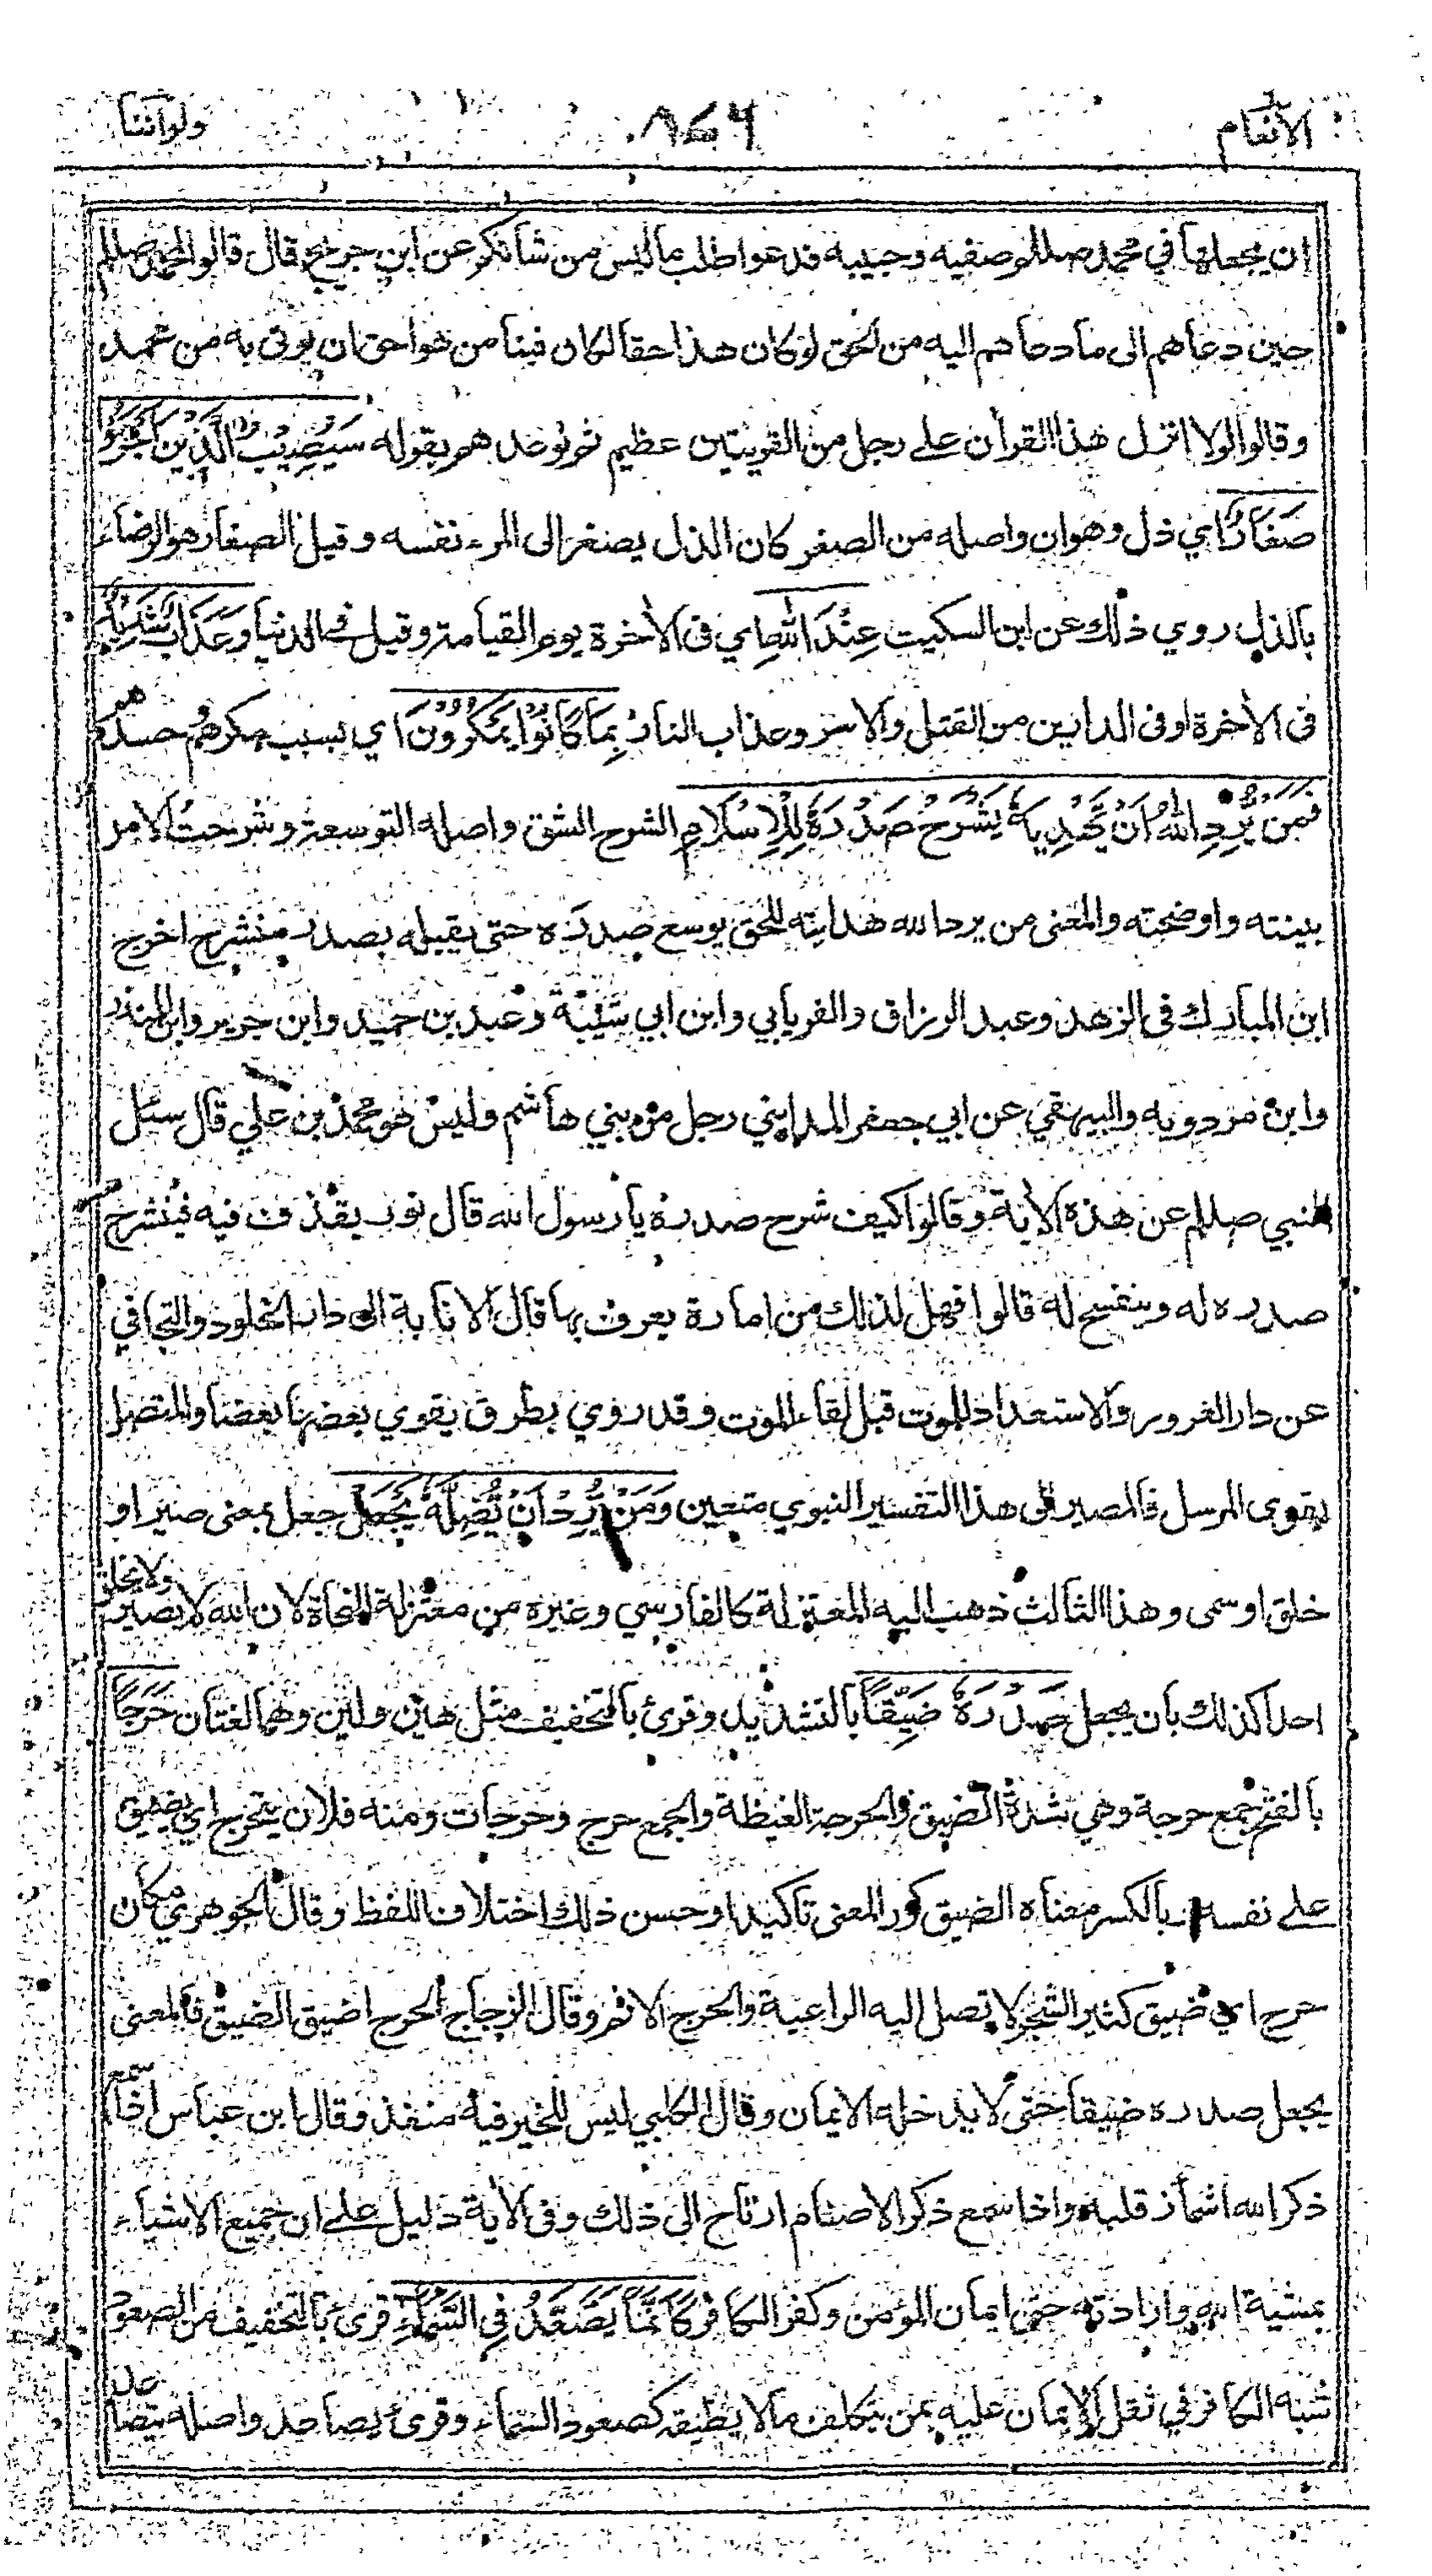 الانعام ولواننا
ان يجعلها في محمد صللم صفيه وحبيبه فدعوا طلب ما ليس من شانكم عن ابن جريج قال قالوا لمحمد صللم
حين دعاهم الى ما دعاهم اليه من الحق لو كان هذا حقا لكان فينا من هو احق ان يوتى به من محمد
وقالوا لولا انزل هذا القرأن على رجل من القريتين عظيم ثم توعدهم بقوله سَيُصِيْبُ الَّذِيْنَ اَجْرَمُوْا
صَغَارٌ اي ذل وهوان واصله من الصغر كان الذل يصغر الى المرء نفسه وقيل الصغار هو الرضاء
بالذل روي ذلك عن ابن السكيت عِنْدَ اللهِ اي فى الأخرة يوم القيامة وقيل فى الدنيا وَعَذَابٌ شَدِيْدٌ
فى الأخرة او فى الدارين من القتل والاسر وعذاب النار بِمَا كَانُوْا يَمْكُرُوْنَ اي بسبب مكرهم وحسدهم
فَمَنْ يُّرِدِ اللهُ اَنْ يَّهْدِيَهٗ يَشْرَحْ صَدْرَهٗ لِلْاِسْلَامِ الشرح الشق واصله التوسعة وشرحت الامر
بينته واوضحته والمعنى من يرد الله هدايته للحق يوسع صدره حتى يقبله بصدر منشرح اخرج
ابن المبارك فى الزهد وعبد الرزاق والفريابي وابن ابي شيبة وعبد بن حميد وابن جرير وابن المنذر
وابن مردويه والبيهقي عن ابي جعفر المدايني رجل من بني هاشم وليس هو محمد بن علي قال سئل
النبي صللم عن هذه الأية وقالوا كيف شرح صدره يا رسول الله قال نور يقذف فيه فينشرح
صدره له وينفسح له قالوا فهل لذلك من امارة يعرف بها قال الانابة الى دار الخلود والتجافي
عن دار الغرور والاستعداد للموت قبل لقاء الموت وقد روي بطرق يقوي بعضها بعضا والمتصل
يقوى المرسل فالمصير الى هذا التفسير النبوي متعين وَمَنْ يُّرِدْ اَنْ يُّضِلَّهٗ يَجْعَلْ جعل بمعنى صير او
خلق او سمى وهذا الثالث ذهب اليه المعتزلة كالفارسي وغيره من معتزلة النحاة لان الله لا يصير ولا يخلق
احدا كذلك بان يجعل صَدْرَهٗ ضَيِّقًا بالتشديد وقرئ بالتخفيف مثل هين ولين وهما لغتان حَرَجًا
بالفتح جمع حرجة وهي شدة الضيق والحرجة الغيظة والجمع حرج وحرجات ومنه فلان يتحرج اي يضيق
على نفسه وبالكسر معناه الضيق كرر المعنى تاكيدا وحسن ذلك اختلاف اللفظ وقال الجوهري مكان
حرج اي ضيق كثير الشجر لا تصل اليه الراعية والحرج الاثم وقال الزجاج الحرج اضيق الضيق فالمعنى
يجعل صدره ضيقا حتى لا يدخله الايمان وقال الكلبي ليس للخير فيه منفذ وقال ابن عباس اذا سمع
ذكر الله اشمأز قلبه واذا سمع ذكر الاصنام ارتاح الى ذلك وفى الأية دليل على ان جميع الاشياء
بمشية الله وارادته حتى ايمان المؤمن وكفر الكافر كَاَنَّمَا يَصَّعَّدُ فِي السَّمَاءِ قرئ بالتخفيف من الصعود
شبه الكافر في ثقل الايمان عليه بمن يتكلف ما لا يطيقه كصعود السماء وقرئ يصاعد واصله يتصاعد